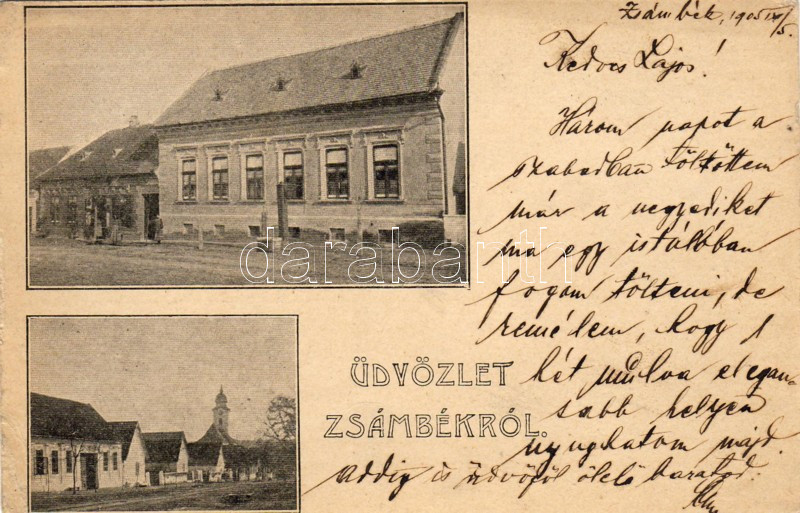 Zsámbék, 1905 IX/5.
Kedves Lajos!
Három napot a
szabadban töltöttem
már a negyediket
ma egy istálóban
fogom tölteni, de
remélem, hogy 1
hét mulva elegán
sabb helyen
nyughatom majd.
addig is üdvözöl ölelő barátod.
darabanth
ÜDVÖZLET
ZSÁMBÉKRÓL.